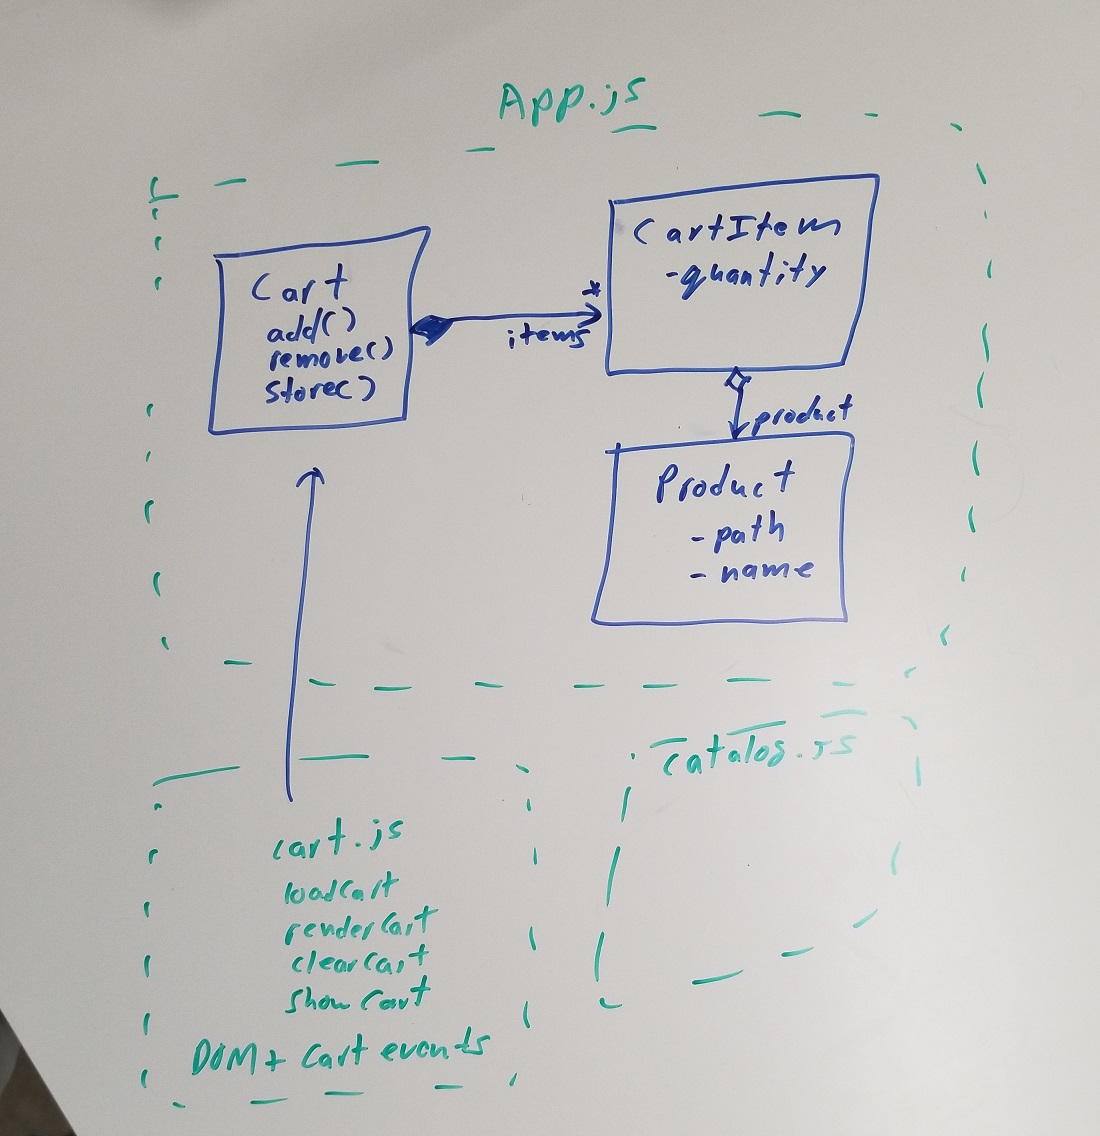 App.js
Cart
add()
remove()
store()
*
items
CartItem
-quantity
product
Product
- path
- name
cart.js
loadCart
renderCart
clearCart
showCart
DOM + Cart events
catalog.js